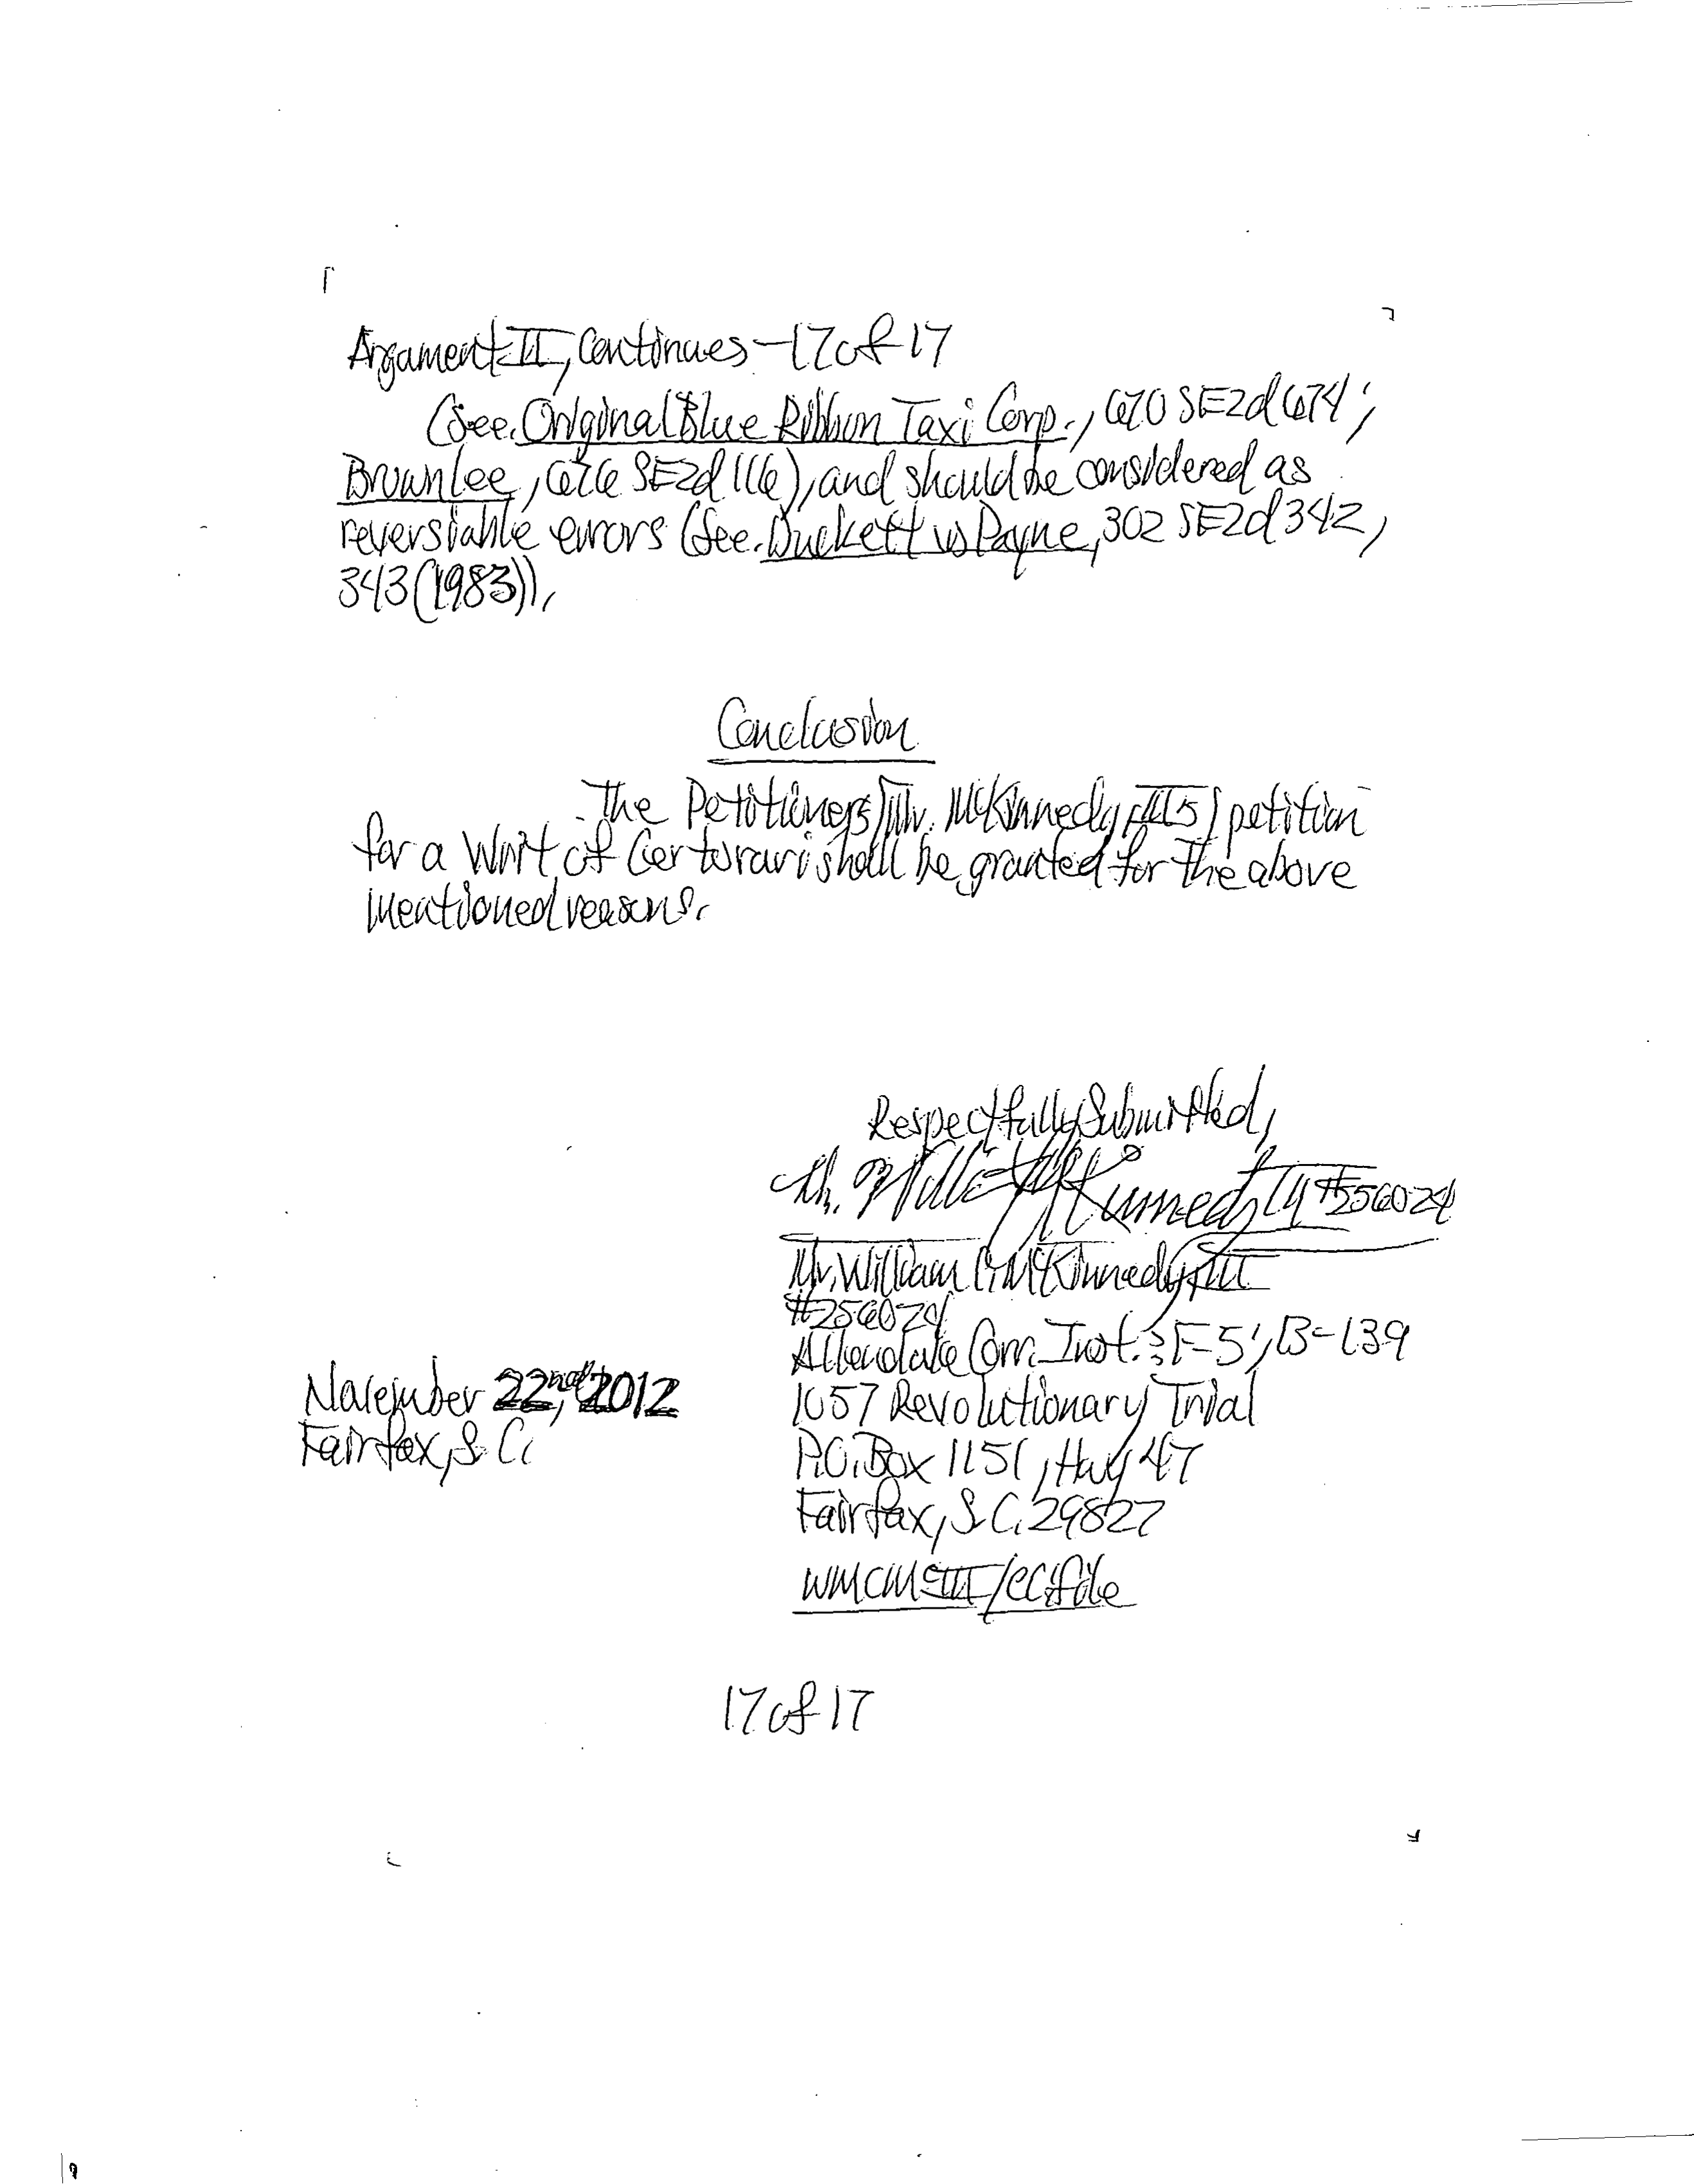 Argument II, Continues - 17 of 17
(See. Original Blue Ribbon Taxi Corp., 670 SE2d 674;
Brownlee, 676 SE2d 116), and should be considered as
reversiable errors (See. Duckett vs Payne, 302 SE2d 342,
343 (1983)).
Conclusion
The Petitioners [Mr. McKinnedy, III's] petition
for a Writ of Certorari shall be granted for the above
mentioned reasons.
Respectfully Submitted,
#256024
Mr. William McKinnedy, III
#256024
Allendale Corr. Inst.; F-5; B-139
November 22nd, 2012
1057 Revolutionary Trial
Fairfax, S.C.
P.O. Box 1151, Hwy 47
Fairfax, S.C. 29827
WMCMCIII/cc: file
17 of 17